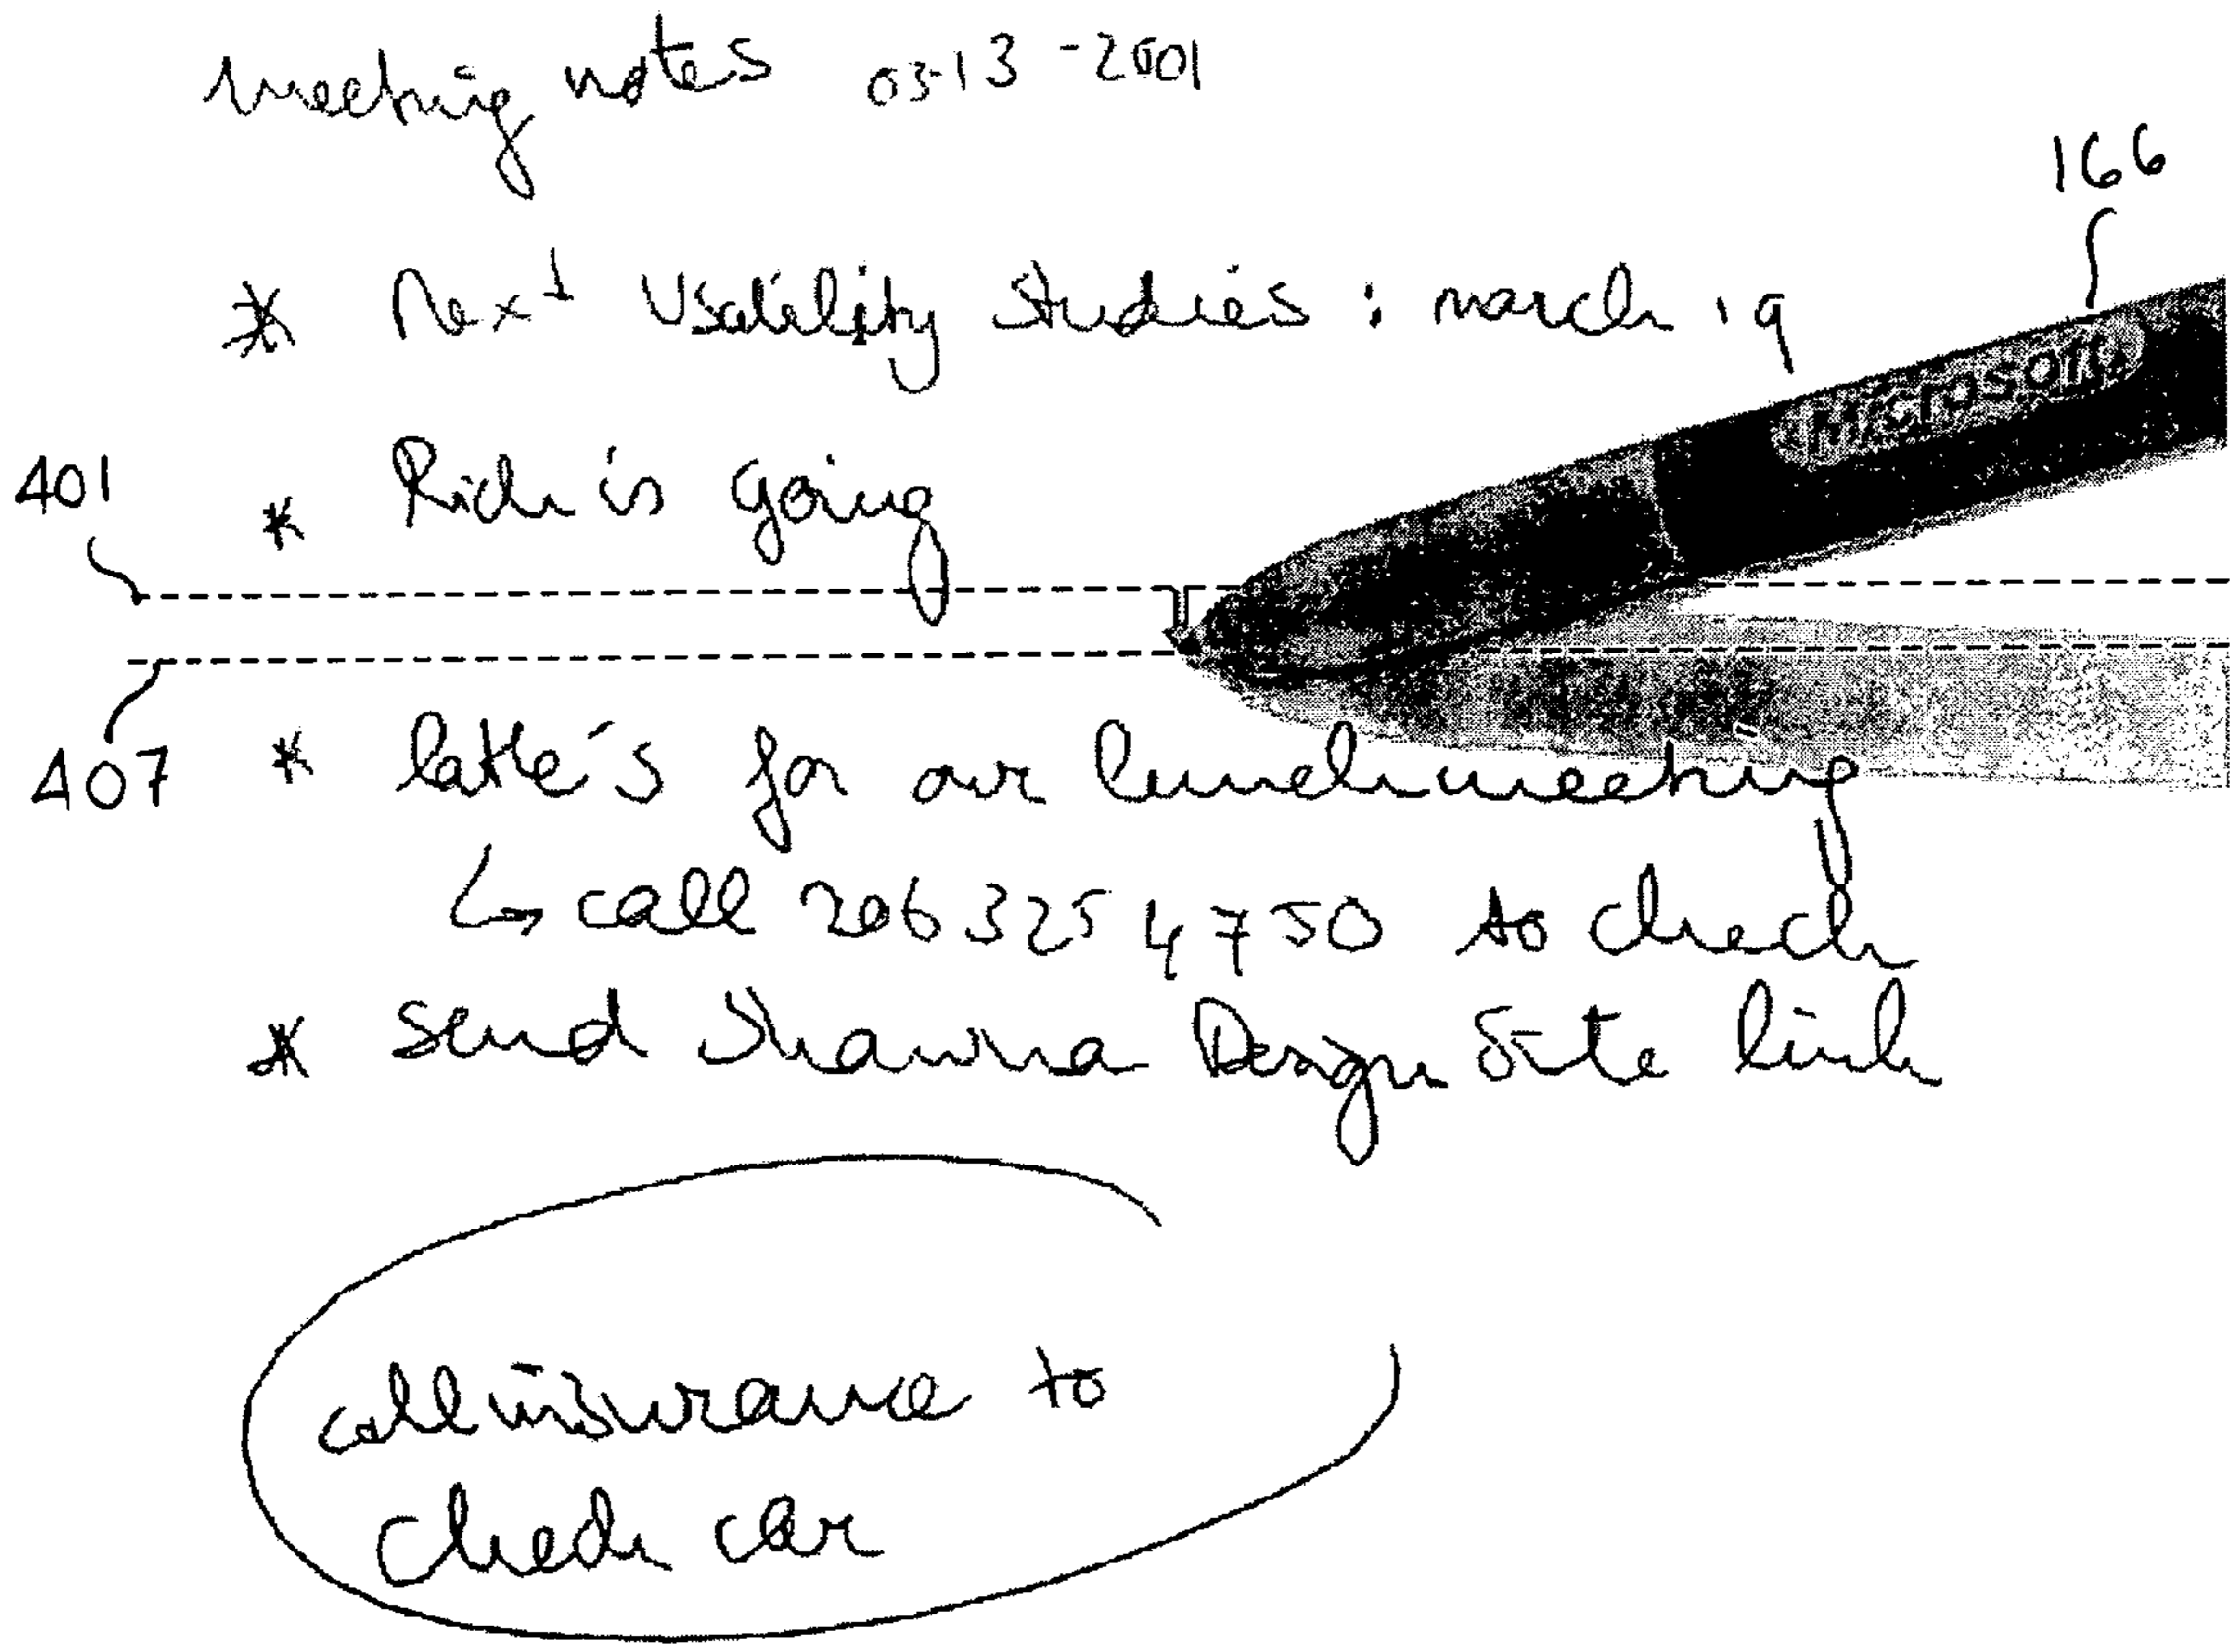 Meeting notes 03-13-2001
166
* Next Usability Studies : march 19
Microsoft
401
* Rich is going
407
* latte's for our lunch meeting
↳ call 206 325 4750 to check
* Send Shawna Design Site link
call insurance to
check car